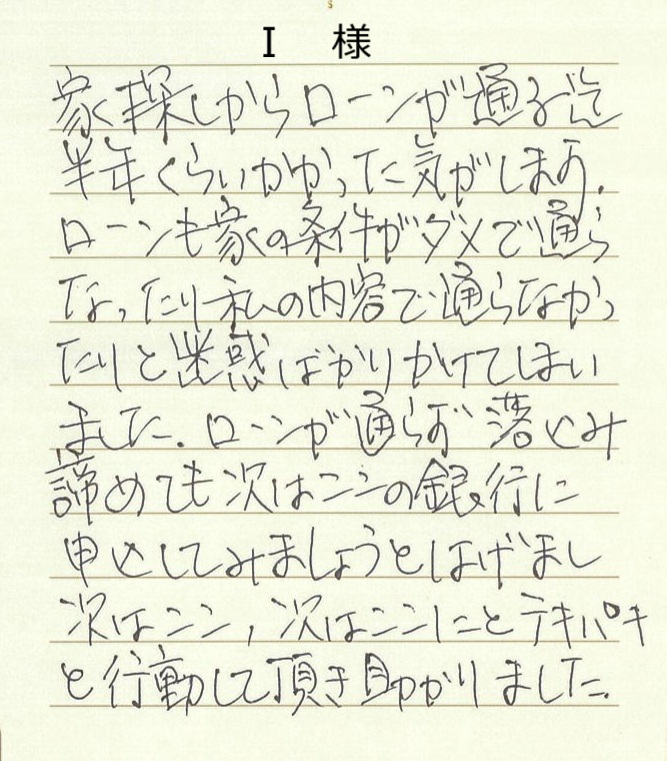 I 様
家探しからローンが通る迄
半年くらいかかった気がします。
ローンも家の条件がダメで通ら
なったり私の内容で通らなかっ
たりと迷惑ばかりかけてしまい
ました。ローンが通らず落込み
諦めても次はここの銀行に
申込してみましょうとはげまし
次はここ,次はここにとテキパキ
と行動して頂き助かりました。